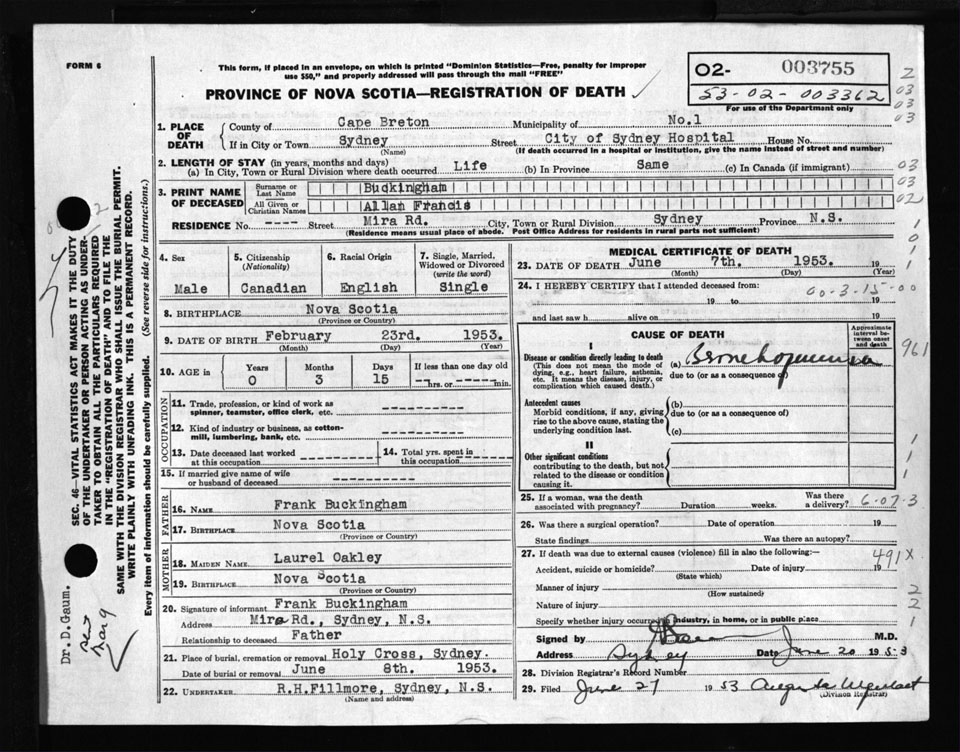 FORM 6
This form, if placed in an envelope, on which is printed "Dominion Statistics—Free, penalty for improper
use $50," and properly addressed will pass through the mail "FREE"
PROVINCE OF NOVA SCOTIA—REGISTRATION OF DEATH
02- 003755
53-02-003362
For use of the Department only
2
03
03
03
1. PLACE OF DEATH
County of Cape Breton Municipality of No.1
If in City or Town Sydney Street City of Sydney Hospital House No.
(Name) (If death occurred in a hospital or institution, give the name instead of street and number)
2. LENGTH OF STAY (in years, months and days)
(a) In City, Town or Rural Division where death occurred Life (b) In Province Same (c) In Canada (if immigrant) 03
3. PRINT NAME OF DECEASED
Surname or Last Name Buckingham 03
All Given or Christian Names Allan Francis 02
RESIDENCE No. ---- Street Mira Rd. City, Town or Rural Division Sydney Province N.S. 1
(Residence means usual place of abode. Post Office Address for residents in rural parts not sufficient)
4. Sex Male
5. Citizenship (Nationality) Canadian
6. Racial Origin English
7. Single, Married, Widowed or Divorced (write the word) Single
8. BIRTHPLACE Nova Scotia
(Province or Country)
9. DATE OF BIRTH February 23rd. 1953.
(Month) (Day) (Year)
10. AGE in Years Months Days If less than one day old
0 3 15 hrs. or min.
OCCUPATION
11. Trade, profession, or kind of work as
spinner, teamster, office clerk, etc.
12. Kind of industry or business, as cotton-
mill, lumbering, bank, etc.
13. Date deceased last worked
at this occupation
14. Total yrs. spent in
this occupation
15. If married give name of wife
or husband of deceased
FATHER
16. NAME Frank Buckingham
17. BIRTHPLACE Nova Scotia
(Province or Country)
MOTHER
18. MAIDEN NAME Laurel Oakley
19. BIRTHPLACE Nova Scotia
(Province or Country)
20. Signature of informant Frank Buckingham
Address Mira Rd., Sydney, N.S.
Relationship to deceased Father
21. Place of burial, cremation or removal Holy Cross, Sydney.
Date of burial or removal June 8th. 1953.
22. UNDERTAKER R.H.Fillmore, Sydney, N.S.
(Name and address)
MEDICAL CERTIFICATE OF DEATH
23. DATE OF DEATH June 7th. 1953. 19
(Month) (Day) (Year)
24. I HEREBY CERTIFY that I attended deceased from:
00-3-15-00
19 to 19
and last saw h alive on 19
CAUSE OF DEATH
Approximate interval between onset and death
I
Disease or condition directly leading to death (a)
(This does not mean the mode of
dying, e.g., heart failure, asthenia,
etc. It means the disease, injury, or
complication which caused death.)
due to (or as a consequence of)
961
Antecedent causes (b)
Morbid conditions, if any, giving
rise to the above cause, stating the
underlying condition last.
due to (or as a consequence of)
(c)
II
Other significant conditions
contributing to the death, but not
related to the disease or condition
causing it.
25. If a woman, was the death
associated with pregnancy? Duration weeks. Was there
a delivery? 6-07-3
26. Was there a surgical operation? Date of operation 19
State findings Was there an autopsy?
27. If death was due to external causes (violence) fill in also the following:—
491X
Accident, suicide or homicide? Date of injury 19
(State which)
Manner of injury 2
(How sustained)
Nature of injury 2
Specify whether injury occurred in industry, in home, or in public place 1
Signed by M.D.
Address Sydney Date June 20 1953
28. Division Registrar's Record Number
29. Filed June 27 1953
(Division Registrar)
SEC. 46—VITAL STATISTICS ACT MAKES IT THE DUTY
OF THE UNDERTAKER OR PERSON ACTING AS UNDER-
TAKER TO OBTAIN ALL THE PARTICULARS REQUIRED
IN THE "REGISTRATION OF DEATH" AND TO FILE THE
SAME WITH THE DIVISION REGISTRAR WHO SHALL ISSUE THE BURIAL PERMIT.
WRITE PLAINLY WITH UNFADING INK. THIS IS A PERMANENT RECORD.
Every item of information should be carefully supplied. (See reverse side for instructions.)
Dr. D. Gaum.